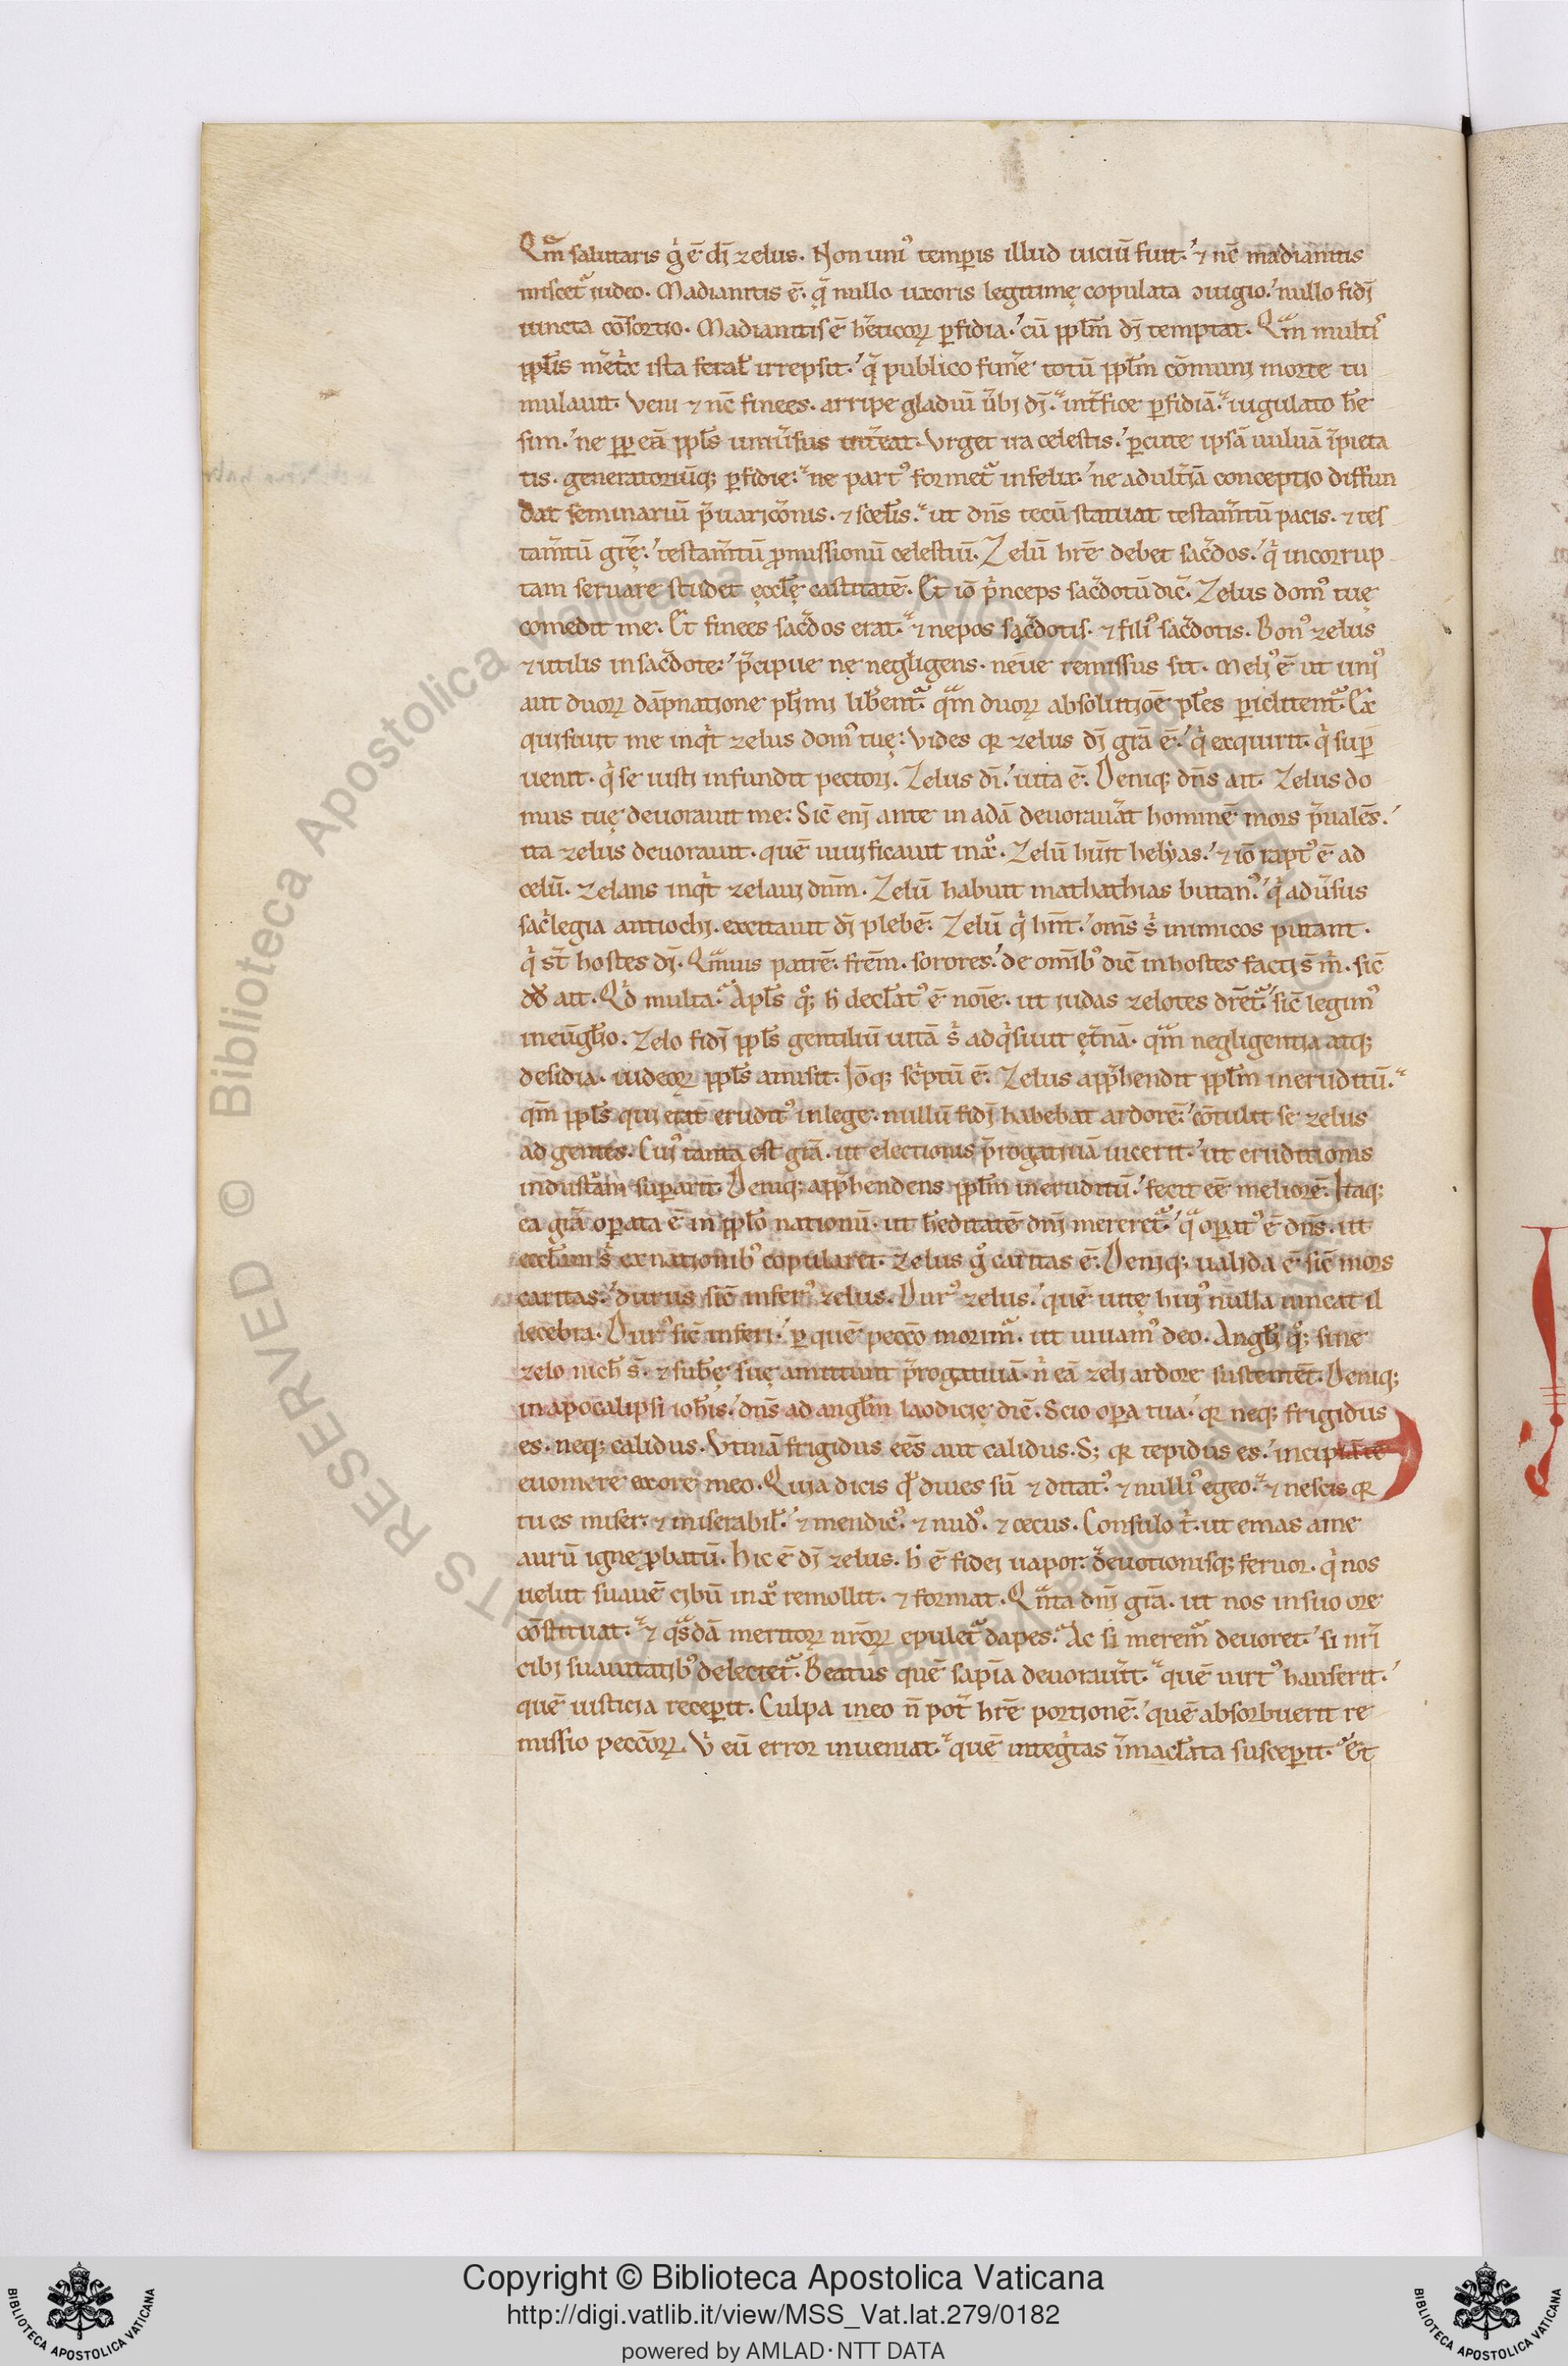 Qm̄ salutaris g̊ ē dī zelus. Non uni᷒ temꝑis illud uiciū fuit.ʼ ⁊ nc̄ madianitis
miscet᷑ iudeo. Madianitis ē. q̨ nullo uxoris legitimę copulata ↄiugio.ʼ nullo fidj
iuncta cōsortio. Madianitis ē h̄eticoꝝ ꝑfidia.ʼ cū ppl̄m dj temptat. Qm̄ multi᷒
ppl̄is m̄et̊x ista feral̄ irrepsit.ʼ q̄ publico fun̄e totū ppl̄m cōmunj morte tu
mulauit. Veni ⁊ nc̄ finees. arripe gladiū ūbj dj. int̄fice ꝑfidiā. iugulato h̄e
sim.ʼ ne ꝓpt̄ eā ppl̄s uniūsus int̄eat. Vrget ira celestis.ʼ ꝑcute ipsā uuluā īpieta
tis. generatoriūq; ꝑfidie. ne part᷒ formet᷑ infelix.ʼ ne adult̄iā conceptio diffun
dat seminariū p̄uaricōnis. ⁊ scel̄is. ut dn̄s tecū statuat testam̄tū pacis. ⁊ tes
tam̄tū gr̄ę.ʼ testam̄tū ꝓmissionū celestiū. Zelū hr̄e debet sac̄dos.ʼ q̇ incorrup
tam seruare studet ęccl̄ę castitatē. Et iō p̊nceps sac̄dotū dic̄. Zelus dom᷒ tuę
comedit me. Et finees sac̄dos erat. ⁊ nepos sac̄dotis. ⁊ fili᷒ sac̄dotis. Bon᷒ zelus
⁊ utilis in sac̄dote.ʼ p̄cipue nę negl̄igens. neue remissus sit. Meli᷒ ē ut uni᷒
aut duoꝝ dāpnatione pl̄imi lib̄ent᷑. q̄m duoꝝ absolutiōe pl̄es ꝑiclitent᷑. Ex
quisiuit me inq̊t zelus dom᷒ tuę. Vides qꝛ zelus dj gr̄a ē.ʼ q̇ exquirit. q̇ suꝑ
uenit. q̇ se iusti infundit pectori. Zelus dī.ʼ uita ē. Deniq; dn̄s ait. Zelus do
mus tuę deuorauit me. Sic̄ enj ante in adā deuorauāt hominē mors p̄ualēs.ʼ
ita zelus deuorauit. quē uiuificauit in xp̄o. Zelū hūit helyas.ʼ ⁊ iō rapt᷒ ē ad
celū. zelans inq̊t zelaui dn̄m. Zelū habuit mathathias butan᷒.ʼ q̇ adūsus
sac̊legia antiochi. excitauit dj plebē. Zelū q̇ hn̄t.ʼ om̄s s̊ inimicos putant.
q̇ st̄ hostes dj. Qm̄uis patrē. frēm. sorores.ʼ de omīb᷒ dic̄ in hostes facti s̄ m̊. sic̄
dd̄ ait. Qd̊ multa. Apl̄s qq; h̊ decl̄at᷒ ē noīe. ut iudas zelotes dr̄et᷑.ʼ sic̄ legim᷒
in eūgl̄io. Zelo fidj ppl̄s gentiliū uitā s̊ adq̊siuit ęt̄nā. q̄m negligentia atq;
desidia. iudeoꝝ ppl̄s amisit. Iōq; sc̊ptū ē. Zelus appr̄hendit ppl̄m ineruditū.
qm̄ ppl̄s qui erat erudit᷒ in lege. nullū fidj habebat ardorē.ʼ cōtulit se zelus
ad gentes. Cui᷒ tanta est gr̄a. ut electionis p̄rogatiuā uicerit.ʼ ut eruditionis
indust̊am suꝑarit. Deniq; appr̄hendens ppl̄m ineruditū.ʼ fecit eē meliorē. Itaq;
ea gr̄a oꝑata ē in ppl̄o nationū. ut h̄editatē dnj mereret᷑.ʼ q̄ oꝑat᷒ ē dn̄s. ut
eccl̄iam s̊ ex nationib᷒ copularet. Zelus g̊ caritas ē. Deniq; ualida ē sic̄ mors
caritas.ʼ durus sic̄ infer᷒ zelus. Dur᷒ zelus.ʼ quē uitę hui᷒ nulla uincat il
lecebra. Dur᷒ sic̄ inferi.ʼ ꝑ quē pecc̄o morim᷑. ut uiuam᷒ deo. Angl̄i qq; sine
zelo nich̄ s̄. ⁊ sub̄ę suę amittunt p̄rogatiuā. n̊ eā zeli ardore sustentēt. Deniq;
in apocalipsi ioh̄is.ʼ dn̄s ad angl̄m laodicię dic̄. Scio oꝑa tua. qꝛ neq; frigidus
es. neq; calidus. Vtinā frigidus eēs aut calidus. S; qꝛ tepidus es.ʼ incipiā te
euomere ex ore meo. Quia dicis qd̄ diues sū ⁊ ditat᷒. ⁊ nulli᷒ egeo. ⁊ nescis qꝛ
tu es miser. ⁊ miserabil̄.ʼ ⁊ mendic᷒. ⁊ nud᷒. ⁊ cecus. Consulo t̊. ut emas a me
aurū igne ꝓbatū. Hic ē dj zelus. h̊ ē fidei uapor. deuotionisq; feruor. q̇ nos
uelut suauē cibū in xp̄o remollit. ⁊ format. Qn̄ta dnj gr̄a. ut nos in suo ore
cōstituat. ⁊ q̄sdā meritoꝝ nr̄oꝝ epulet᷑ dapes. Ac si merem᷑ deuoret.ʼ si nr̄i
cibj suauitatib᷒ delectet᷑. Beatus quē sapīa deuorauīt. quē uirt᷒ hauserit.ʼ
quē iusticia receꝑit. Culpa in eo n̄ pot̄ hr̄e portionē.ʼ quē absorbuerit re
missio peccōꝝ. V̊ eū error inueniat. quē integ̊tas īmacl̄ata susceꝑit. Et
Copyright © Biblioteca Apostolica Vaticana
http://digi.vatlib.it/view/MSS_Vat.lat.279/0182
powered by AMLAD·NTT DATA
BIBLIOTECA APOSTOLICA VATICANA
BIBLIOTECA APOSTOLICA VATICANA